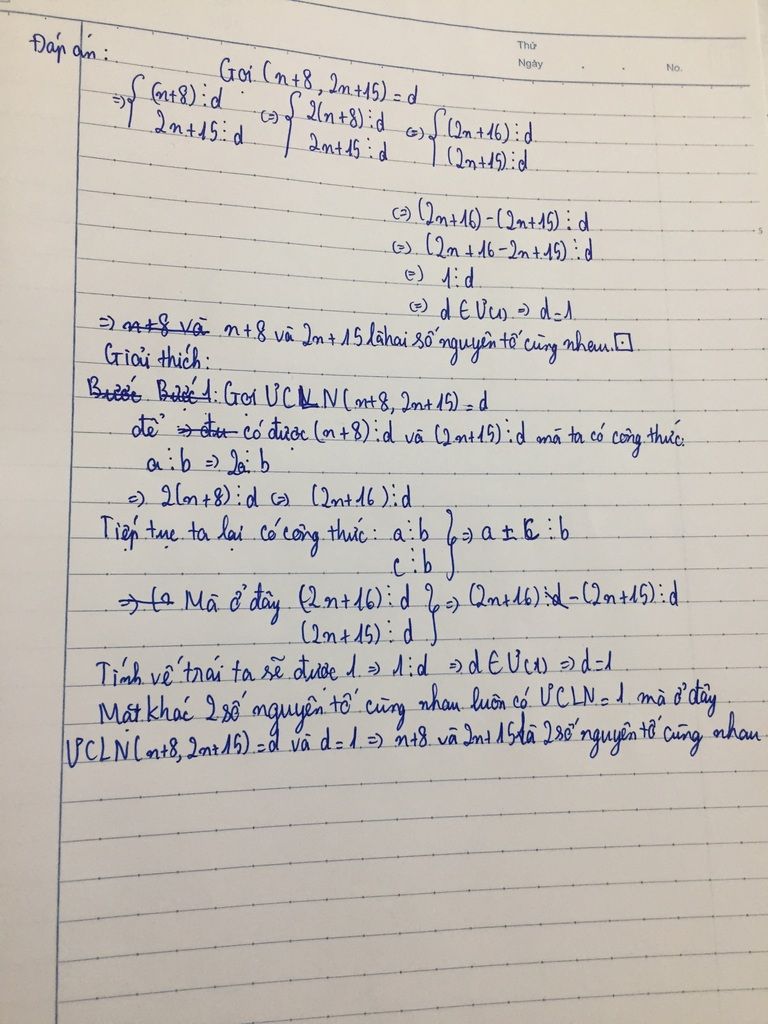 Thứ
Ngày . . No.
Đáp án:
Gọi (n+8, 2n+15) = d
=> { (n+8) ⋮ d (=) { 2(n+8) ⋮ d (=) { (2n+16) ⋮ d
2n+15 ⋮ d 2n+15 ⋮ d (2n+15) ⋮ d
(=) (2n+16) - (2n+15) ⋮ d
(=) (2n+16-2n+15) ⋮ d
(=) 1 ⋮ d
(=) d ∈ Ư(1) => d=1
=> n+8 và n+8 và 2n+15 là hai số nguyên tố cùng nhau. ⊡
Giải thích:
Bước Bước 1: Gọi ƯCLN (n+8, 2n+15) = d
để => đu có được (n+8) ⋮ d và (2n+15) ⋮ d mà ta có công thức:
a ⋮ b => 2a ⋮ b
=> 2(n+8) ⋮ d (=) (2n+16) ⋮ d
Tiếp tục ta lại có công thức: a ⋮ b } => a ± c ⋮ b
c ⋮ b
=> Mà ở đây (2n+16) ⋮ d } => (2n+16) ⋮ d - (2n+15) ⋮ d
(2n+15) ⋮ d
Tính vế trái ta sẽ được 1 => 1 ⋮ d => d ∈ Ư(1) => d=1
Mặt khác 2 số nguyên tố cùng nhau luôn có ƯCLN = 1 mà ở đây
ƯCLN (n+8, 2n+15) = d và d=1 => n+8 và 2n+15 là 2 số nguyên tố cùng nhau